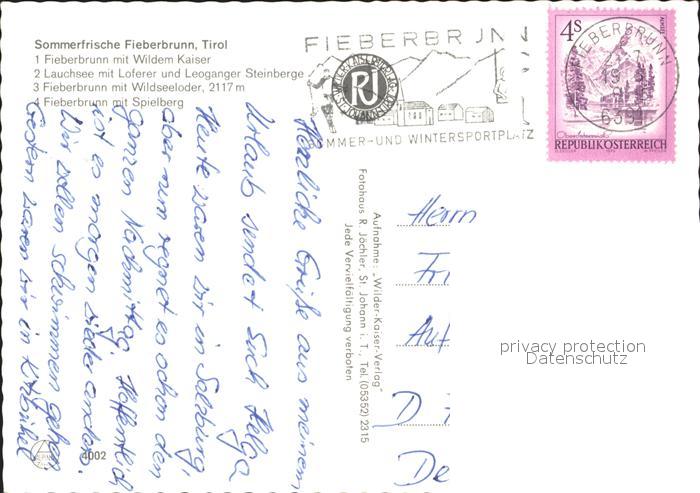 Sommerfrische Fieberbrunn, Tirol
1 Fieberbrunn mit Wildem Kaiser
2 Lauchsee mit Loferer und Leoganger Steinberge
3 Fieberbrunn mit Wildseeloder, 2117 m
4 Fieberbrunn mit Spielberg
FIEBERBRUNN
SOMMER-UND WINTERSPORTPLATZ
4S
REPUBLIK ÖSTERREICH
FIEBERBRUNN
639
Herzliche Grüße aus meinem
Urlaub sendet Euch Helga
Heute waren wir in Salzburg,
aber nun regnet es schon den
ganzen Nachmittag. Hoffentlich
ist es morgen wieder anders.
Wir wollen schwimmen gehen
Gestern waren wir in Kitzbühel
Aufnahme: „Wilder-Kaiser-Verlag"
Fotohaus R. Jöchler, St. Johann i. T., Tel. (05352) 2315
Jede Vervielfältigung verboten
Herrn
Fri
Auf
D
De
privacy protection
Datenschutz
4002